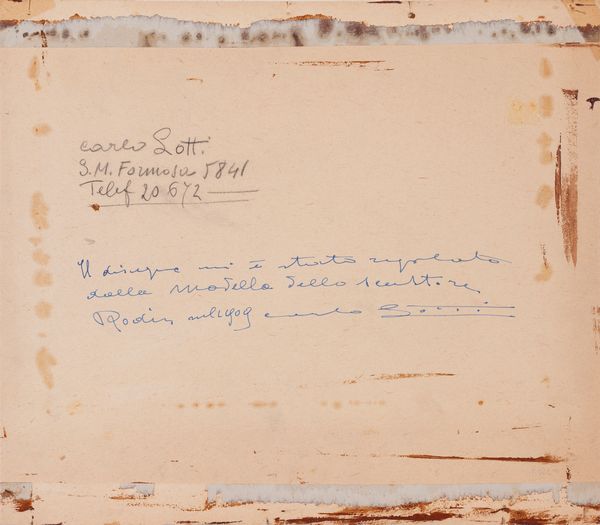 Carlo Lotti
S.M. Formosa 5841
Telef 20 672
Il disegno mi è stato regalato
dalla modella dello scultore
Rodin nel 1909 Carlo Lotti